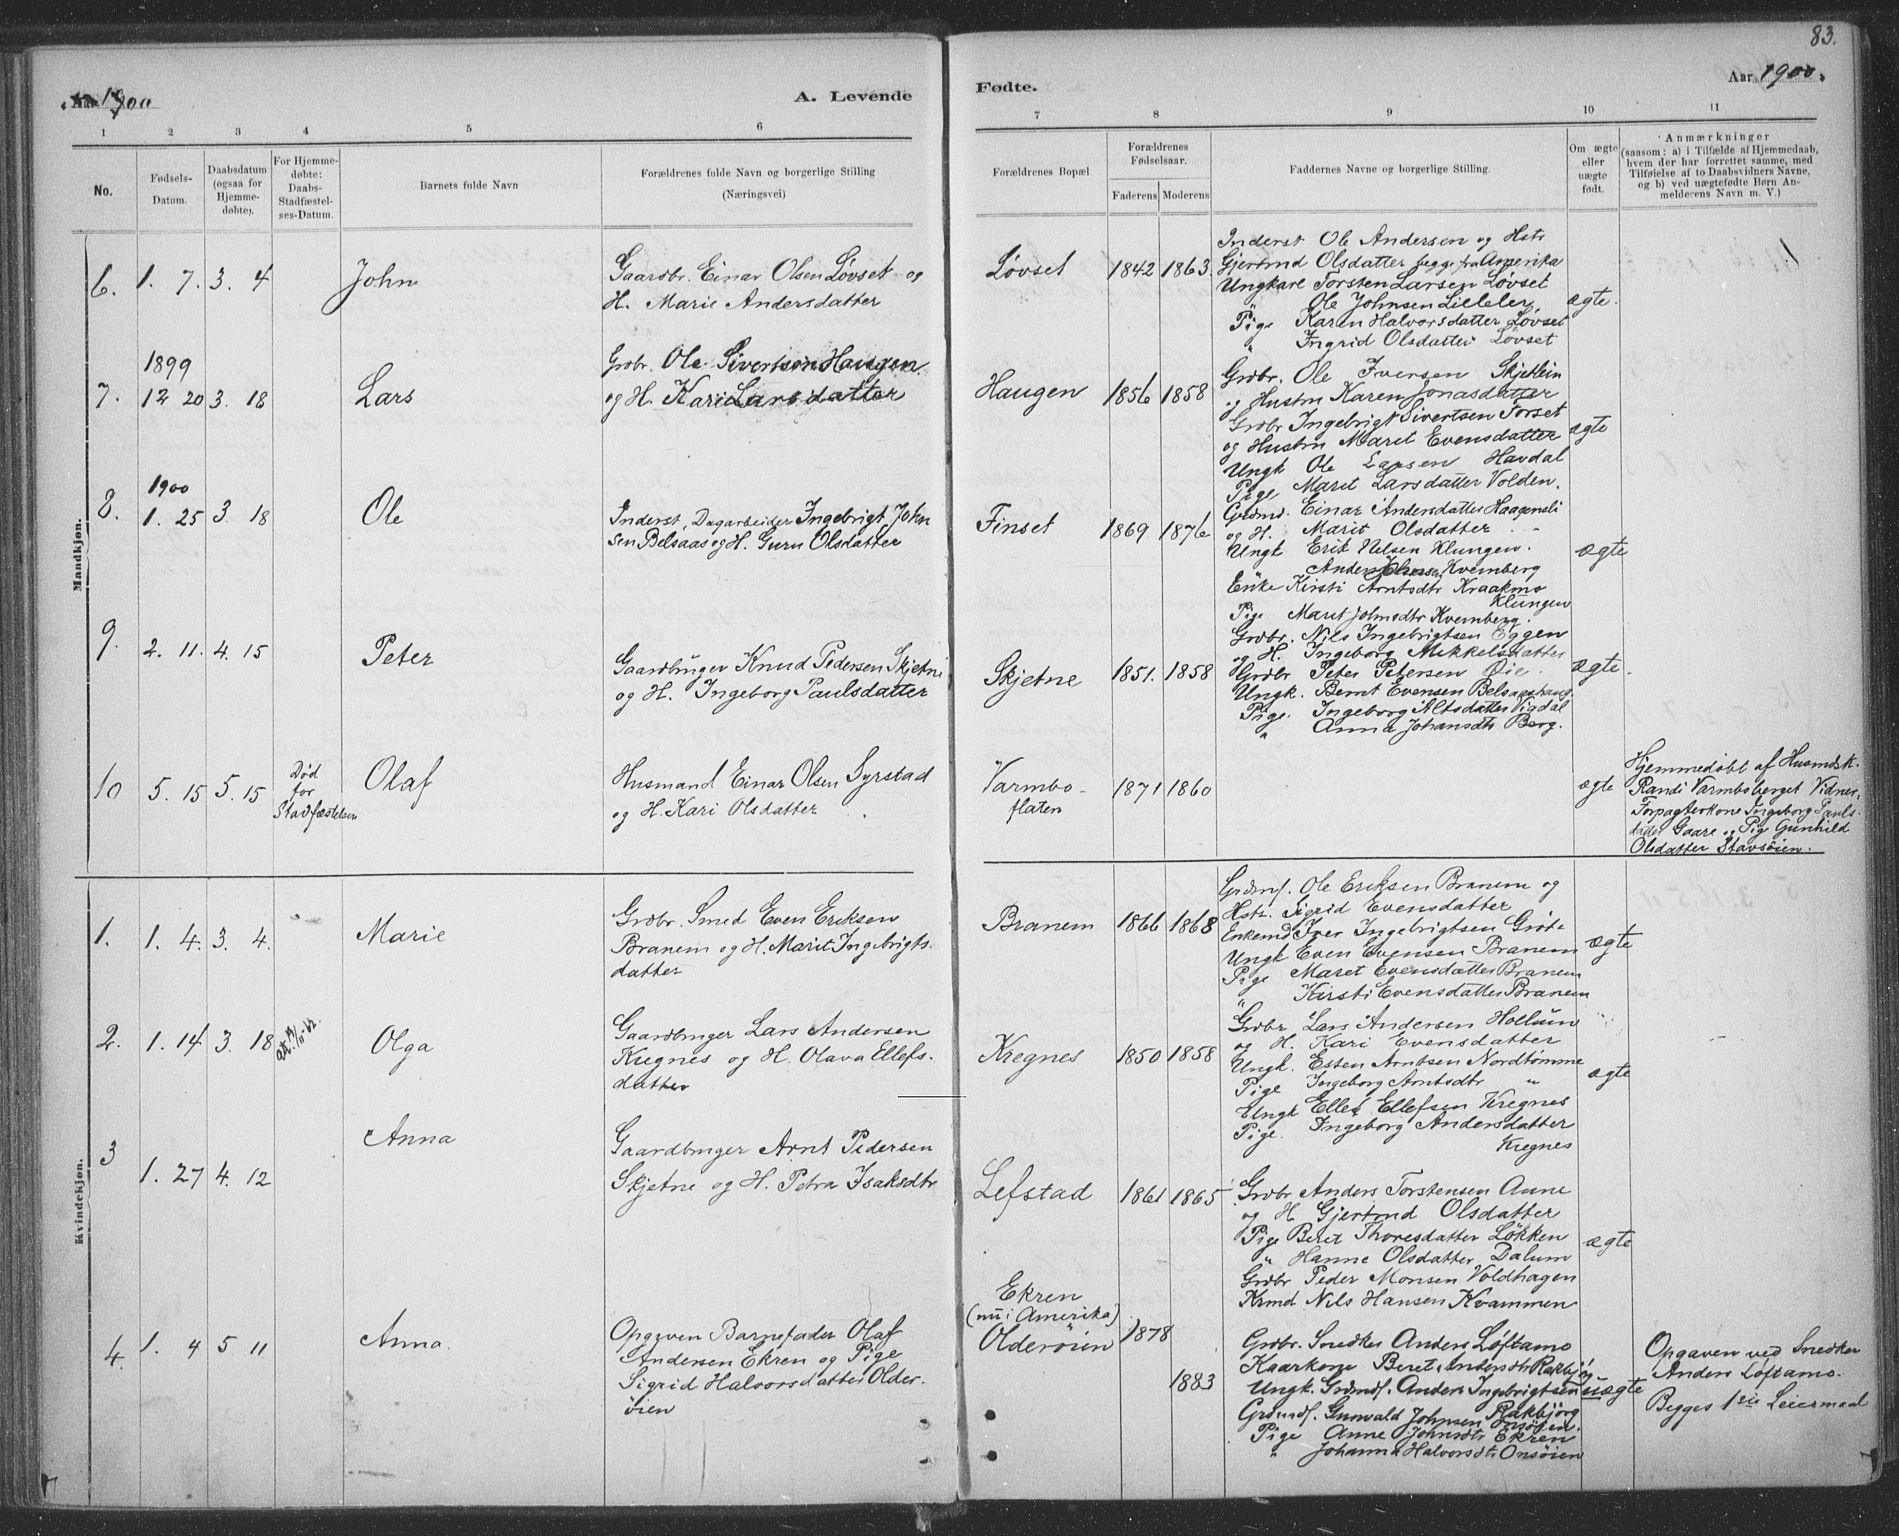 83.
Aar 1900
A. Levende
Fødte.
Aar 1900.
1 2 3 4 5 6 7 8 9 10 11
No.
Fødsels-
Datum.
Daabsdatum
(ogsaa for
Hjemme-
døbte).
For Hjemme-
døbte:
Daabs-
Stadfæstel-
ses-Datum.
Barnets fulde Navn
Forældrenes fulde Navn og borgerlige Stilling
(Næringsvei)
Forældrenes Bopæl.
Forældrenes
Fødselsaar.
Faderens Moderens
Faddernes Navne og borgerlige Stilling.
Om ægte
eller
uægte
født.
Anmærkninger
(saasom: a) i Tilfælde af Hjemmedaab,
hvem der har forrettet samme, med
Tilføielse af to Daabsvidners Navne,
og b) ved uægtefødte Børn An-
melderens Navn m. V.)
Mandkjøn.
6. 1. 7. 3. 4 John
Gaardbr. Einar Olsen Løvset og
H. Marie Andersdatter
Løvset 1842 1863.
Inderst Ole Andersen og Hstr
Gjertrud Olsdatter begge fra Amerika
Ungkarl Torsten Larsen Løvset
" Ole Johnsen Lilleler
Pige Karen Halvorsdatter Løvset
" Ingrid Olsdatter Løvset
ægte.
1899
7. 12 20 3. 18 Lars
Grdbr. Ole Sivertsen Haugen
og H. Kari Larsdatter
Haugen 1856 1858
Grdbr. Ole Iversen Skjetlein
og Hustru Karen Jonasdatter
Grdbr Ingebrigt Sivertsen Torset
og Hustru Marit Evensdatter
Ungk Ole Larsen Havdal
Pige Maret Larsdatter Volden.
ægte
1900
8. 1. 25 3. 18 Ole
Inderst, Dagarbeider Ingebrigt John
sen Belsaas og H. Guru Olsdatter
Finset 1869 1876
Grdmd. Einar Andersdatter Haagensli
og H. Marit Olsdatter
Ungk Erik Nilsen Klungen.
Anders Johnsen Kvernberg
Enke Kirsti Arntsdtr Kraakmo
Klungen
Pige Marit Johnsdtr Kvernberg.
ægte
9. 2. 11. 4. 15 Peter
Gaardbruger Knud Pedersen Skjetne
og H. Ingeborg Paulsdatter
Skjetne 1851. 1858
Grdbr. Nils Ingebrigtsen Eggen
og H. Ingeborg Mikkelsdatter
Grdbr Peter Petersen Øie
Ungk. Bernt Evensen Belsaashaug
Pige. Ingeborg Altsdatter Vigdal
" Anna Johansdtr Berg.
ægte.
10 5. 15 5. 15
Død
før
Stadfæstelsen
Olaf
Husmand Einar Olsen Syrstad
og H. Kari Olsdatter
Varmbo-
flaten
1871 1860
ægte
Hjemmedøbt af Husmdsk.
Randi Varmbøberget Vidner
Forpagterkone Ingeborg Pauls-
datter Gaare og Pig Gunhild
Olsdatter Stavsøien.
Kvindekjøn.
1. 1. 4. 3. 4. Marie
Grdbr. Smed Even Eriksen
Branem og H. Marit Ingebrigts-
datter
Branem 1866 1868
Grdmd. Ole Eriksen Branem og
Hstr. Sigrid Evensdatter
Enkemd Iver Ingebrigtsen Grøte
Ungk Even Evensen Branem
Pige Maret Evensdatter Branem
" Kirsti Evensdatter Branem
ægte
2. 1. 14 3. 18 Olga
Gaardbruger Lars Andersen
Kregnes og H. Olava Ellefs-
datter
Kregnes 1850 1858
Grdbr Lars Andersen Hollum
og H. Kari Evensdatter
Ungk. Esten Arntsen Nordtømme
Pige Ingeborg Arntsdtr "
Ungk Ellef Ellefsen Kregnes
Pige. Ingeborg Andersdatter
Kregnes
ægte
3 1. 27 4. 12 Anna
Gaardbruger Arnt Pedersen
Skjetne og H. Petra Isaksdtr
Lefstad 1861 1865
Grdbr Anders Torstensen Aune
og H Gjertrud Olsdatter
Pige Beret Thoresdatter Løkken
" Hanne Olsdatter Dalum
Grdbr Peder Monsen Voldhagen
Krmd Nils Hansen Kvammen
ægte
4. 1. 4 5 11 Anna.
Opgaven Barnefader Olaf
Andersen Ekren og Pige
Sigrid Halvorsdatter Older-
øien
Ekren
(nu i Amerika)
Olderøien 1878
1883
Grdbr. Snedker Anders Løftamo
Kaarkone Beret Andersdtr Rakbjørg
Ungk. Grdmds. Anders Ingebrigtsen
Grdmds. Gunvald Johnsen Rakbjørg
Onsøien
Pige Anne Johnsdtr Ekren
" Johanna Halvorsdtr Onsøien
uægte
Opgaven ved Snedker
Anders Løftamo.
Begges 1ste Leiermaal